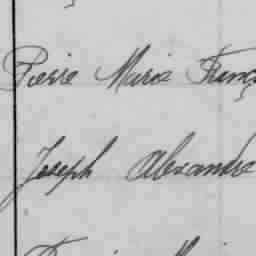 Pierre Marie Franç
Joseph Alexandre